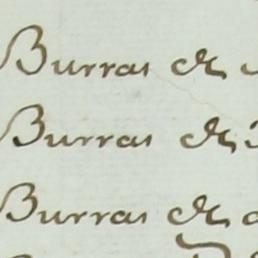 Burras de
Burras de
Burras de